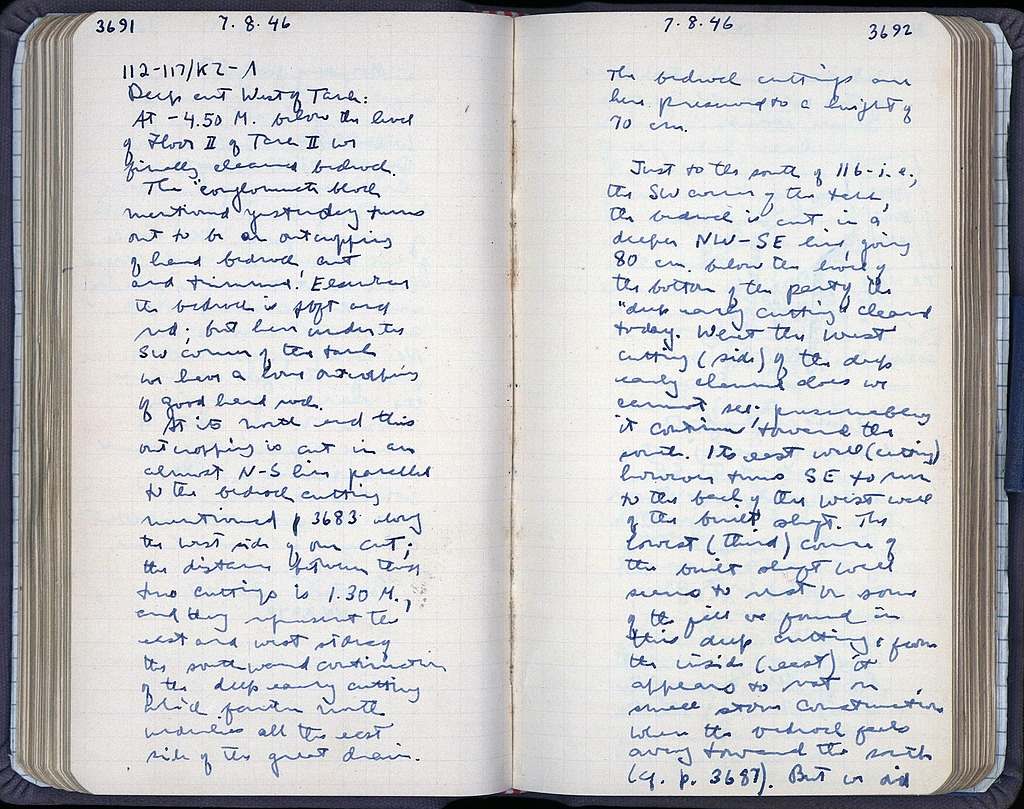 3691
7.8.46
112-117/ΚΖ-Λ
Deep cut West of Tank:
At -4.50 M. below the level
of Floor II of Tank II we
finally cleaned bedrock.
The "conglomerate block
mentioned yesterday turns
out to be an outcropping
of hard bedrock, cut
and trimmed! Elsewhere
the bedrock is soft and
red; but here under the
SW corner of the tank
we have a long outcropping
of good hard rock.
At its north end this
outcropping is cut in an
almost N-S line parallel
to the bedrock cutting
mentioned p 3683 along
the west side of our cut;
the distance between these
two cuttings is 1.30 M.,
and they represent the
east and west sides of
the southward continuation
of the deep early cutting
which farther north
underlies all the east
side of the great drain.
7.8.46
3692
The bedrock cuttings are
here preserved to a height of
70 cm.
Just to the south of 116-i.e.,
the SW corner of the tank,
the bedrock is cut in a
deeper NW-SE line, going
80 cm. below the level of
the bottom of the part of the
"deep early cutting" cleared
today. What the west
cutting (side) of the deep
early channel does we
cannot see; presumably
it continues toward the
south. Its east wall (cutting)
however turns SE to run
to the back of the west wall
of the built shaft. The
lowest (third) course of
the built shaft wall
seems to rest on some
of the fill we found in
this deep cutting, from
the inside (east) it
appears to rest on
small stone construction
where the bedrock falls
away toward the south
(cf. p. 3687). But we did